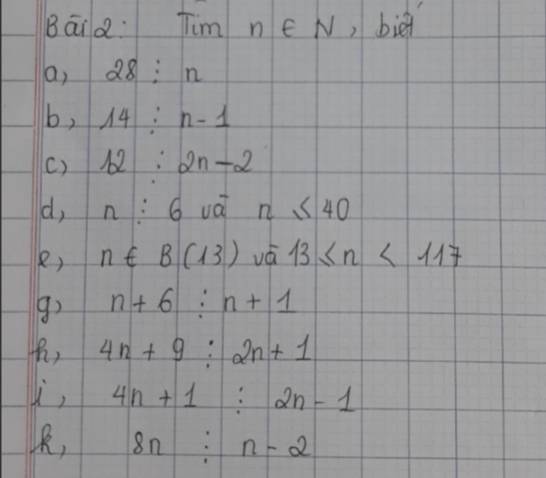 Bài 2: Tìm n ∈ N, biết
a, 28 ⋮ n
b, 14 ⋮ n-1
c) 12 ⋮ 2n-2
d, n ⋮ 6 và n ≤ 40
e, n ∈ B(13) và 13 ≤ n < 117
g, n+6 ⋮ n+1
h, 4n+9 ⋮ 2n+1
i, 4n+1 ⋮ 2n-1
k, 8n ⋮ n-2